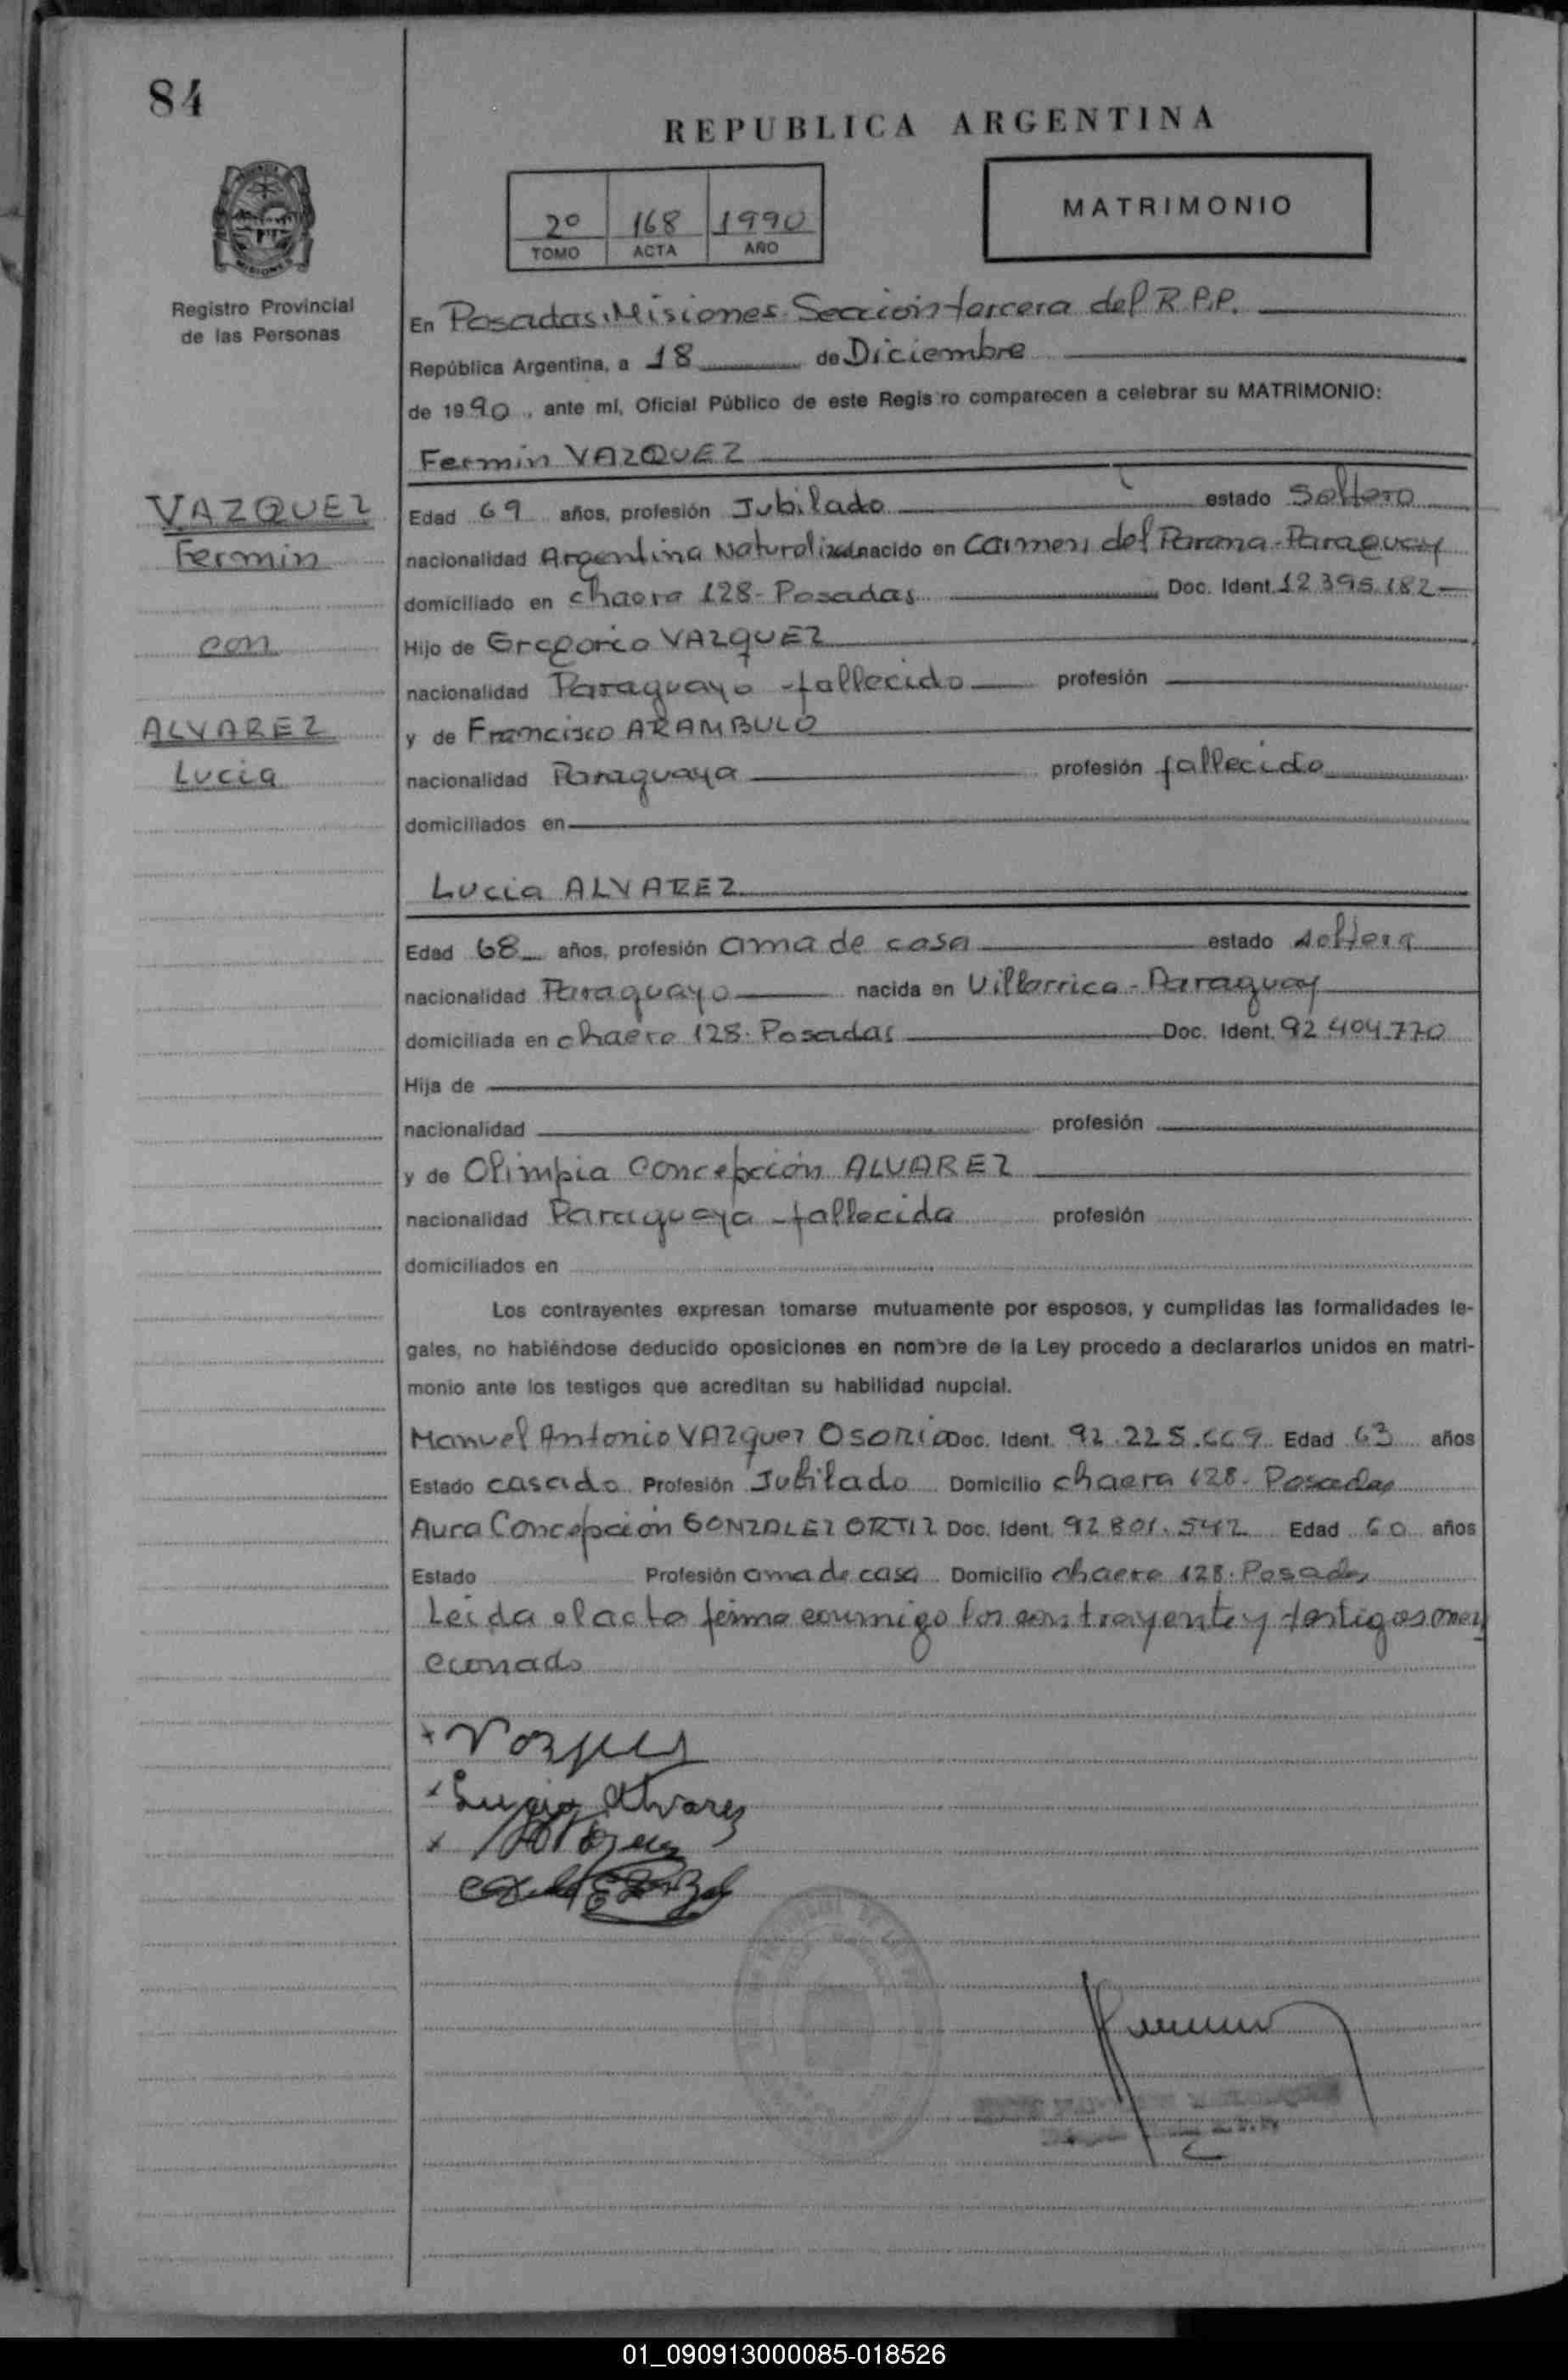 84
REPUBLICA ARGENTINA
2º 168 1990
TOMO ACTA AÑO
MATRIMONIO
Registro Provincial
de las Personas
En Posadas, Misiones. Sección tercera del R.P.P.
República Argentina, a 18 de Diciembre
de 1990, ante mí, Oficial Público de este Regis ro comparecen a celebrar su MATRIMONIO:
Fermin VAZQUEZ
VAZQUEZ
Fermin
con
ALVAREZ
Lucia
Edad 69 años, profesión Jubilado estado Soltero
nacionalidad Argentina Naturalizado nacido en Carmen del Parana-Paraguay
domiciliado en chacra 128-Posadas Doc. Ident. 12.395.182
Hijo de Gregorio VAZQUEZ
nacionalidad Paraguayo -fallecido profesión
y de Francisco ARAMBULO
nacionalidad Paraguaya profesión fallecido
domiciliados en
Lucia ALVAREZ
Edad 68 años, profesión ama de casa estado soltera
nacionalidad Paraguayo nacida en Villarrica-Paraguay
domiciliada en chacra 128. Posadas Doc. Ident. 92.404.770
Hija de
nacionalidad profesión
y de Olimpia Concepción ALVAREZ
nacionalidad Paraguaya -fallecida profesión
domiciliados en
Los contrayentes expresan tomarse mutuamente por esposos, y cumplidas las formalidades le-
gales, no habiéndose deducido oposiciones en nombre de la Ley procedo a declararlos unidos en matri-
monio ante los testigos que acreditan su habilidad nupcial.
Manuel Antonio VAZquez OSORIO Doc. Ident. 92.225.669 Edad 63 años
Estado casado Profesión Jubilado Domicilio chacra 128. Posadas
Aura Concepción GONZALEZ ORTIZ Doc. Ident. 92.801.542 Edad 60 años
Estado Profesión ama de casa Domicilio chacra 128. Posadas
Leida el acta firma conmigo los contrayente y testigos men
cionado
Lucia Alvarez
01_090913000085-018526